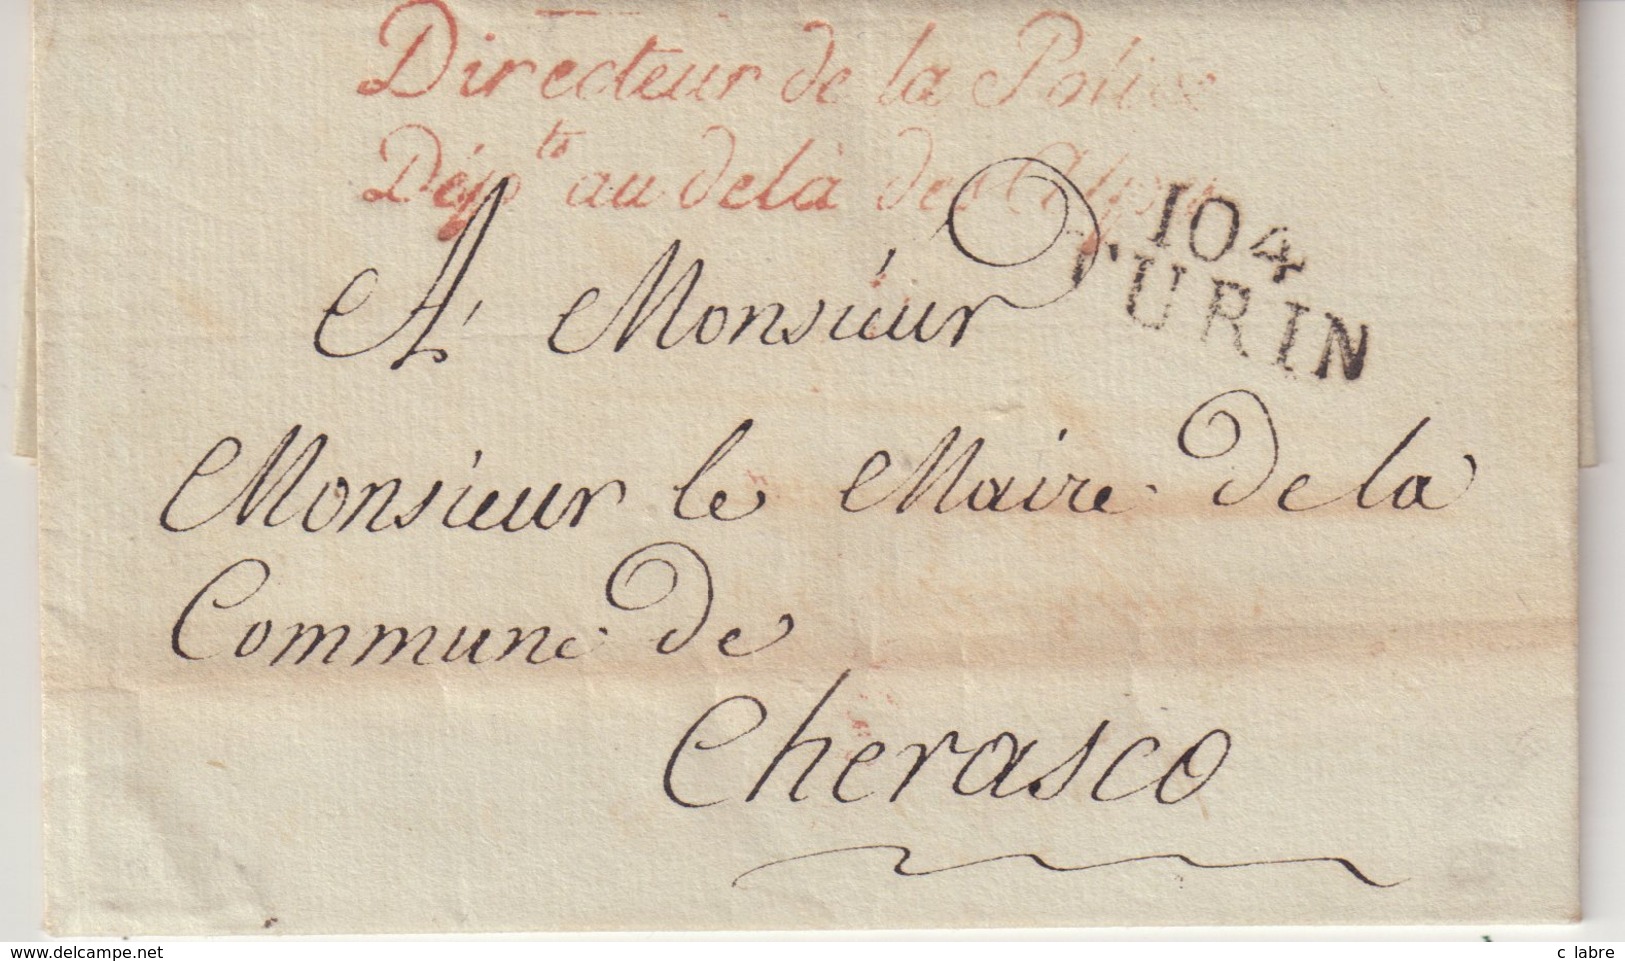 Directeur de la Police
Dépts au delà des Alpes
104
TURIN
A Monsieur
Monsieur le Maire de la
Commune de
Cherasco
delcampe.net
c labre